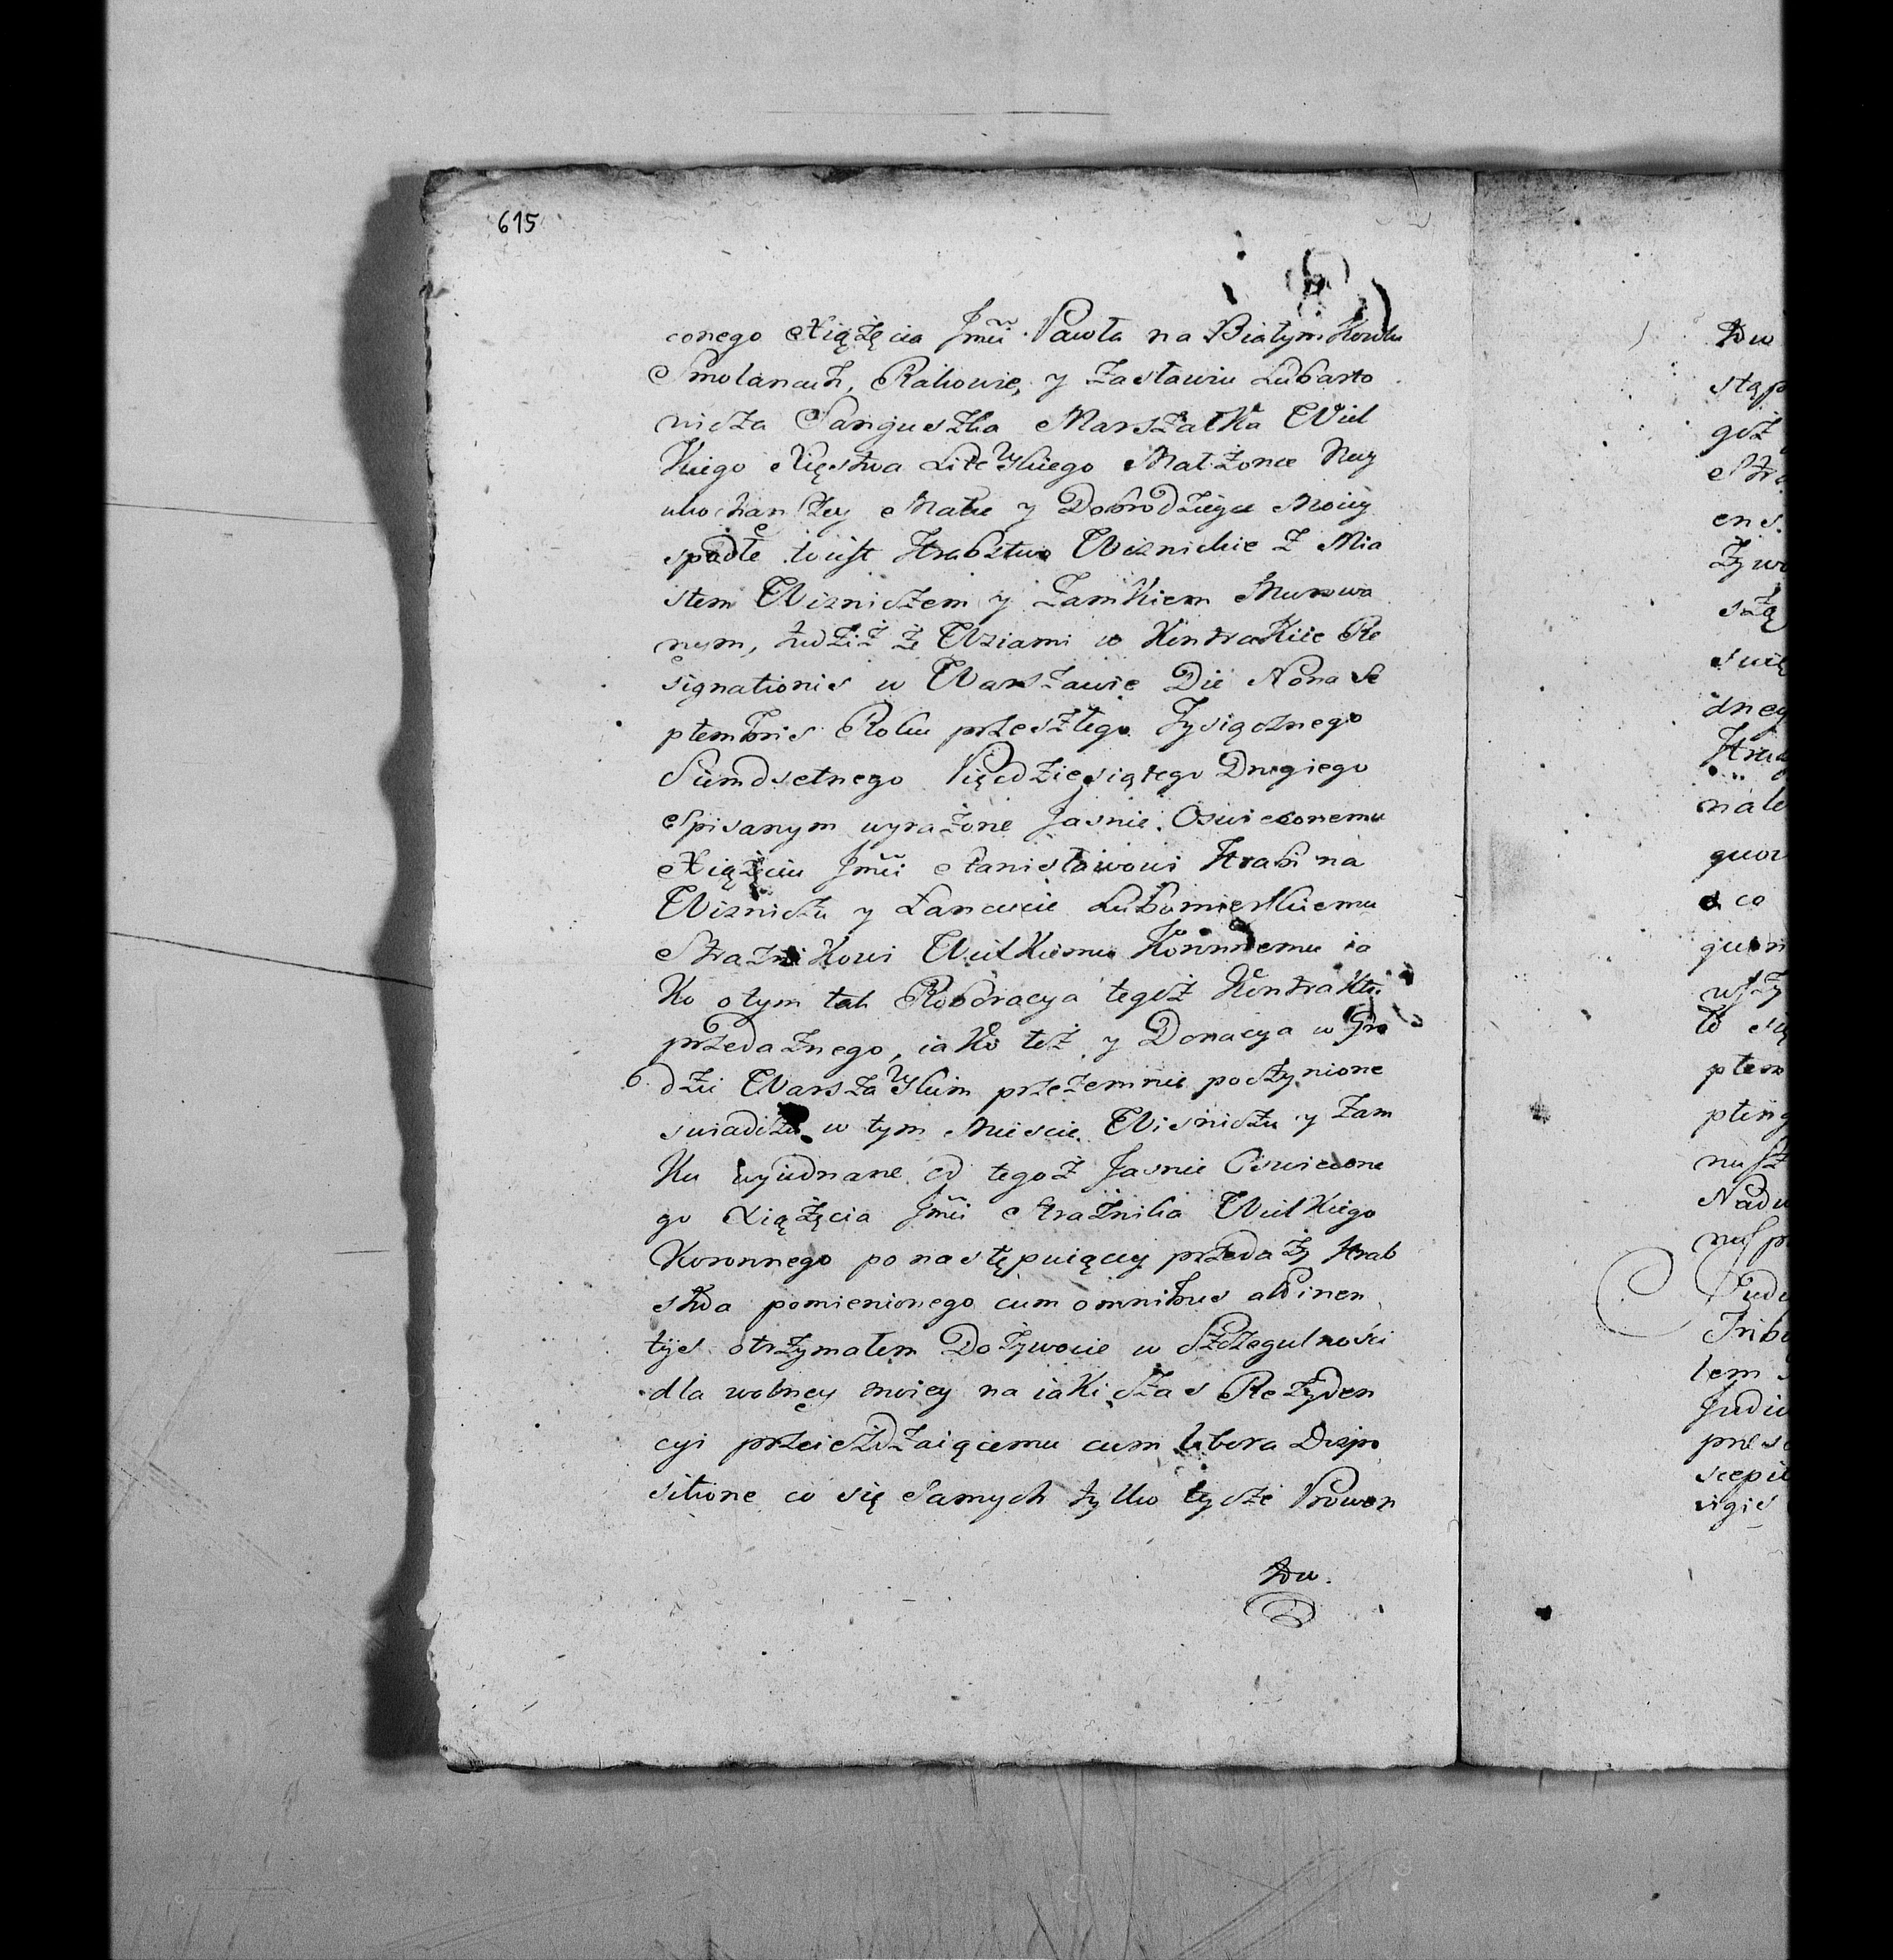 615
conego Xiążęcia Jmći Pawła na Białym Kowlu
Smolanach, Rakowie, y Zasławiu Lubarto
wicza Sanguszka Marszałka Wiel
kiego Xięstwa Litewskiego Małżonce Nay
ukochanszey Matce y Dobrodzieyce Moiey
spadłe to iest Hrabstwo Wisnickie z Mia
stem Wisniczem y Zamkiem Murowa
nym, tudziż ze Wsiami w Kontrakcie Re
signationis w Warszawie Die Nona Se
ptembris Roku przeszłego Tysiącznego
Siedmsetnego Pięćdziesiątego Drugiego
Spisanym wyrażone Jasnie Oswieconemu
Xiążęciu Jmći Stanisławowi Hrabi na
Wisniczu y Łancucie Lubomirskiemu
Strażnikowi Wielkiemu Koronnemu ia
ko o tym tak Roboracya tegoż Kontraktu
przedażnego, iako też y Donacya w Gro
dzie Warszawskim przezemnie poczynione
swiadczą w tym Miescie Wisniczu y Zam
ku wyiednane od tegoż Jasnie Oswiecone
go Xiążęcia Jmći Strażnika Wielkiego
Koronnego po następuiącey przedaży Hrab
stwa pomienionego cum omnibus attinen
tijs otrzymałem Dożywocie w Szczegulności
dla wolney moiey na iaki czas Rezyden
cyi przeieżdżaiącemu cum libera Dispo
sitione co się Samych tylko tycze Prowen
tow.
tow
stąp
goż
Stra
ens.
żywo
szą
swię
dney
Hrab
nale
quor
a co
quon
wszy
to się
ptem
pting
nusz
Nadw
nusp
Jude
Tribu
lem
Judic
prese
scepit
sigis